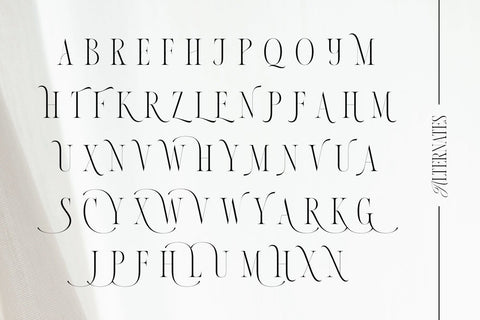 A B R E F H J P Q O Y M
H T F K R Z L E N P F A H M
U X N V W H Y M N V U A
S C Y X W V W Y A R K G
J P F H L U M H X N
ALTERNATES